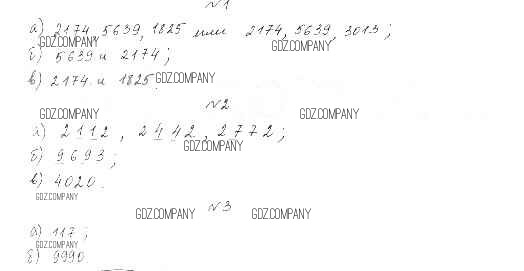 №1
а) 2174, 5639, 1825 или 2174, 5639, 3013;
GDZ.COMPANY GDZ.COMPANY
б) 5639 и 2174;
в) 2174 и 1825. GDZ.COMPANY
№2
GDZ.COMPANY GDZ.COMPANY
а) 2112, 2442, 2772;
GDZ.COMPANY
б) 9693;
в) 4020.
GDZ.COMPANY
GDZ.COMPANY №3 GDZ.COMPANY
а) 117;
GDZ.COMPANY
б) 9990